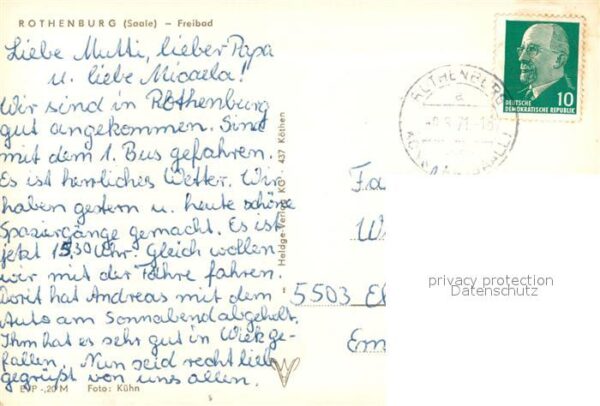 ROTHENBURG (Saale) – Freibad
Liebe Mutti, lieber Papa
u. liebe Micaela!
Wir sind in Rothenburg
gut angekommen. Sind
mit dem 1. Bus gefahren.
Es ist herrliches Wetter. Wir
haben gestern u. heute schöne
Spaziergänge gemacht. Es ist
jetzt 15,30 Uhr. Gleich wollen
wir mit der Fähre fahren.
Dorit hat Andreas mit dem
Auto am Sonnabend abgeholt.
Ihm hat es sehr gut in Wiek ge-
fallen. Nun seid recht lieb
gegrüßt von uns allen.
EVP -,20 M Foto: Kühn
Heldge-Verlag KG · 437 Köthen
DEUTSCHE
DEMOKRATISCHE REPUBLIK 10
ROTHENBURG
a
Fa
W
5503 El
Em
privacy protection
Datenschutz